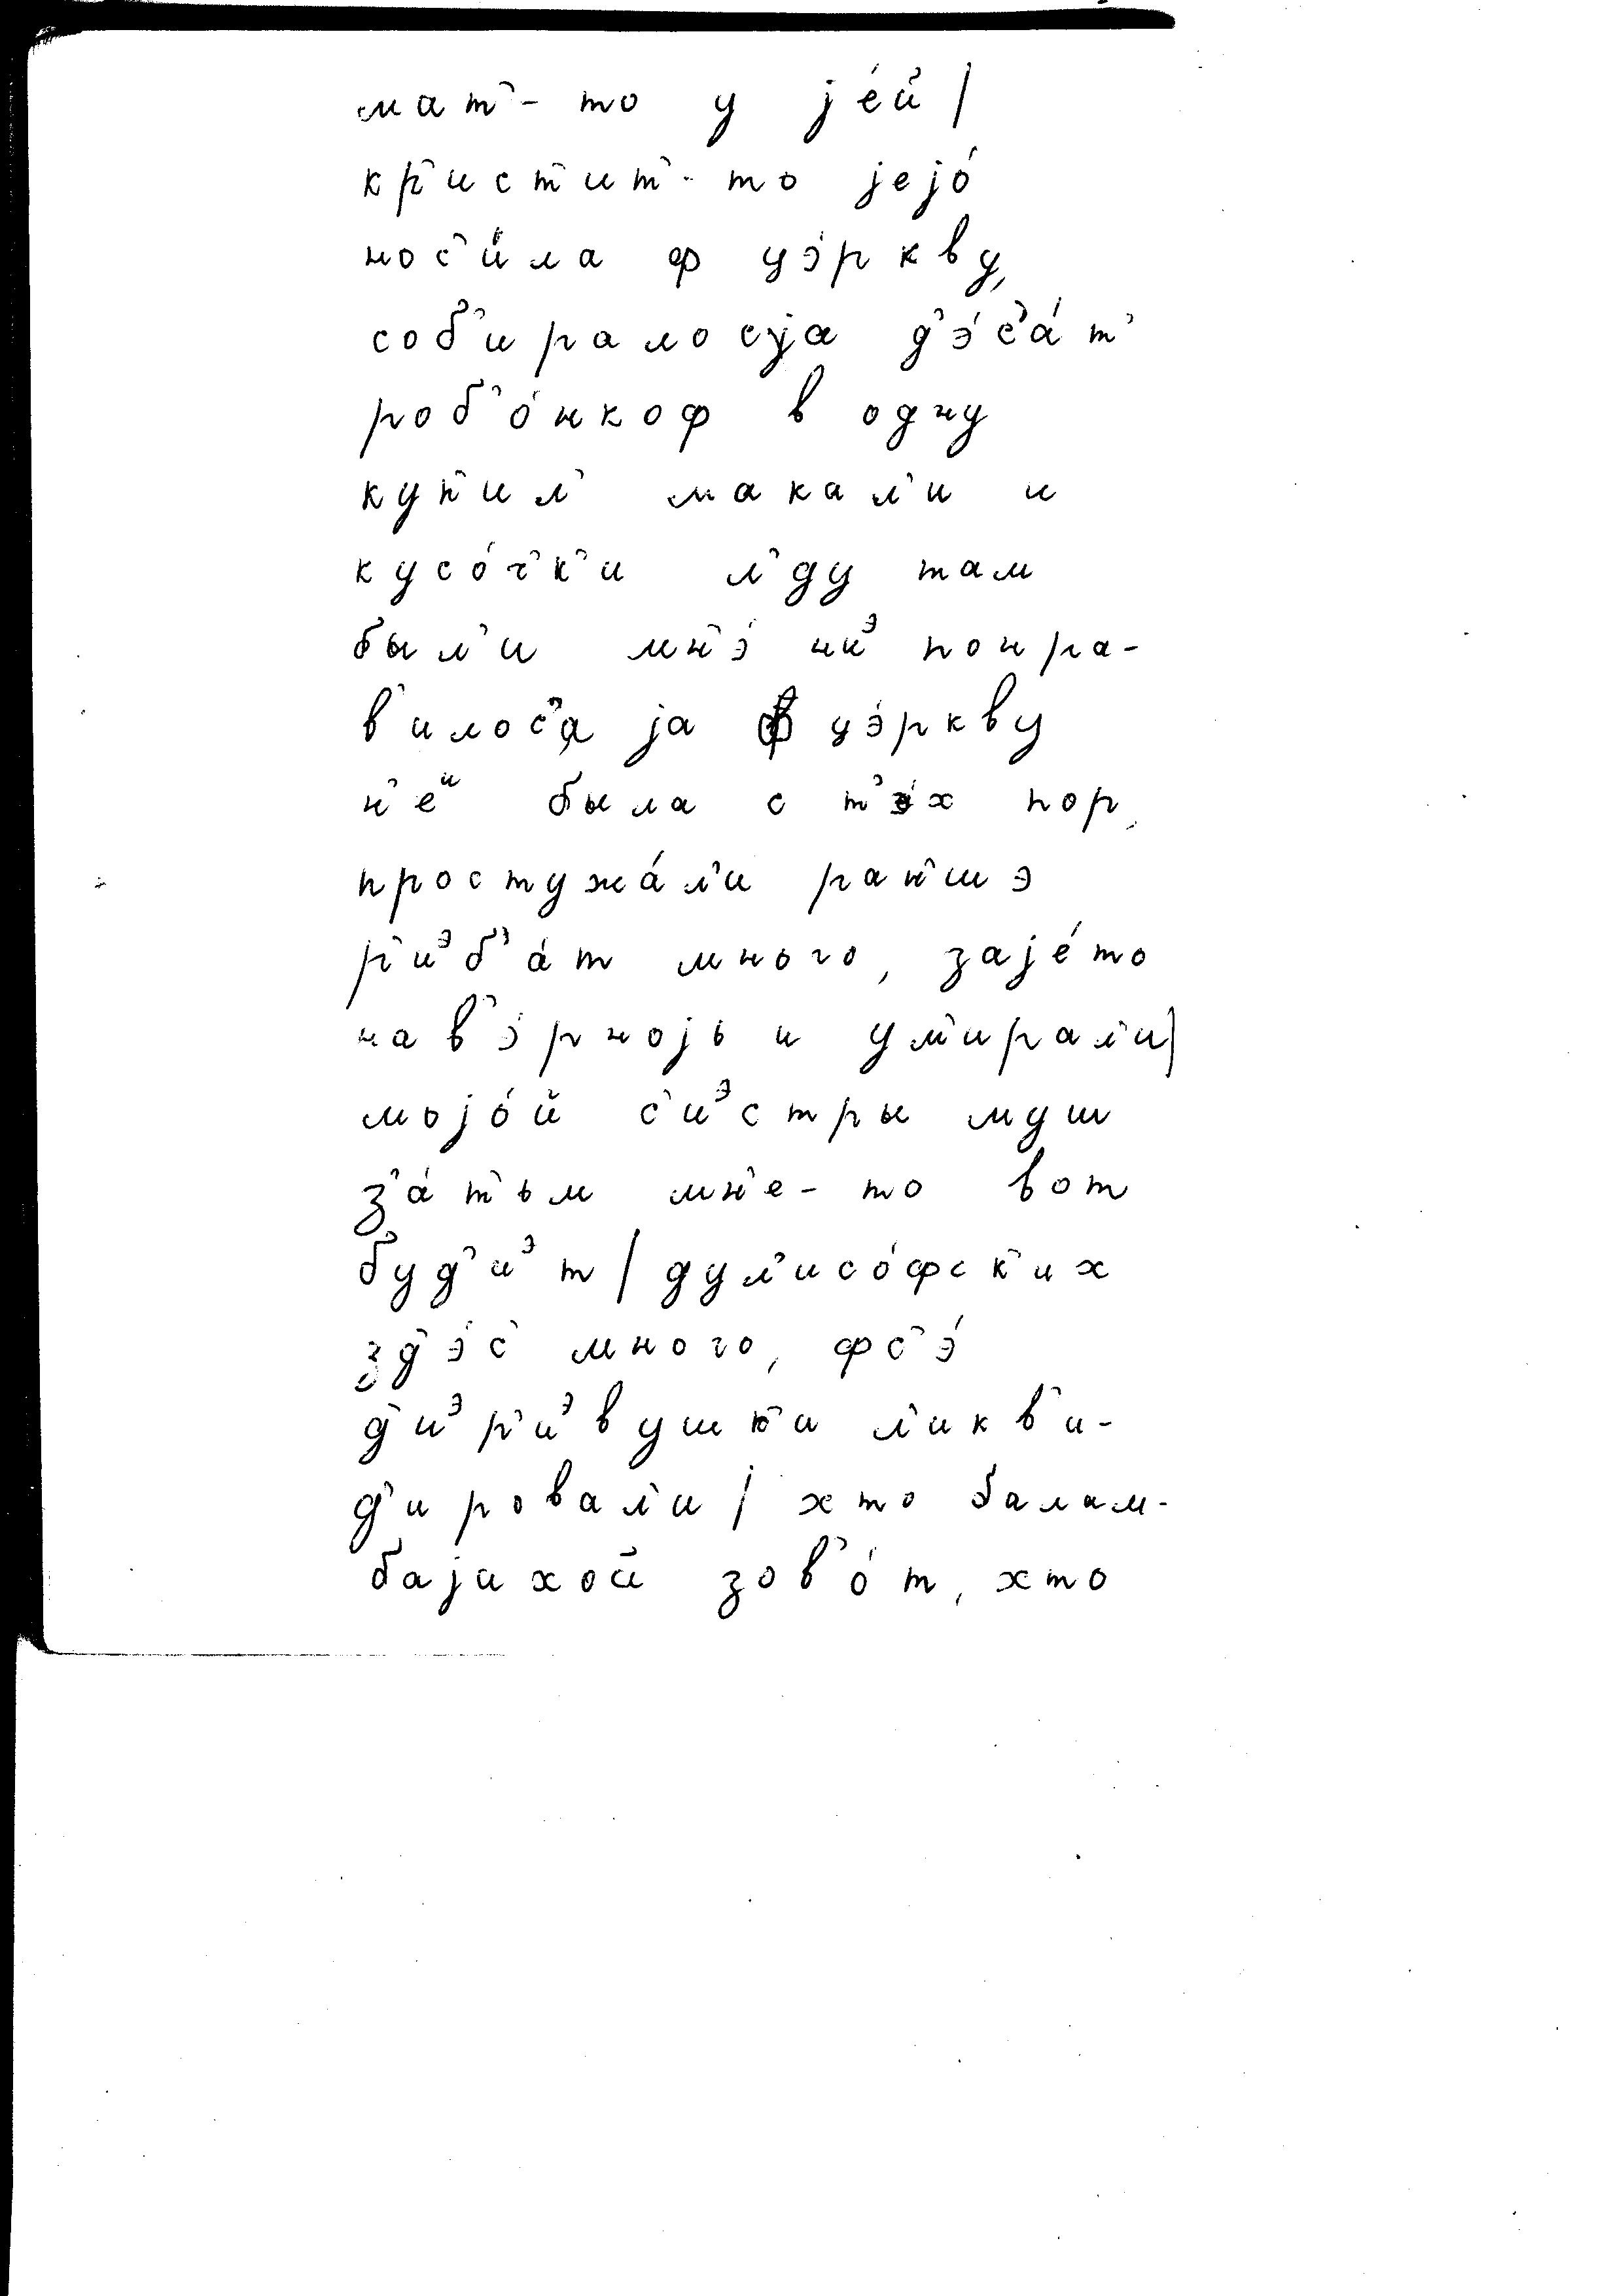 мат’-то у је́й |
кр’ист’ит’-то јејо́
нос’и́ла ф цэ́ркву,
соб’иралосја д’э́с’а́т’
роб’о́нкоф в одну
куп’ил’ макал’и и
кусо́ч’к’и л’ду там
был’и мн’э́ ниᵊ понра-
в’илос’а ја ф цэ́ркву
н’еᵘ была с т’э́х пор,
простужа́л’и ран’шэ
р’иᵊб’а́т много, заје́то
нав’э́рнојь и ум’ирал’и |
мојо́й с’иᵊстры муш
з’а́т’ьм мн’е-то вот
буд’иᵊт | дул’исо́фск’их
з’д’э́с’ много, фс’э́
д’иᵊр’иᵊвушк’и л’икв’и-
д’ировал’и | хто балам-
бајихой зов’о́т, хто